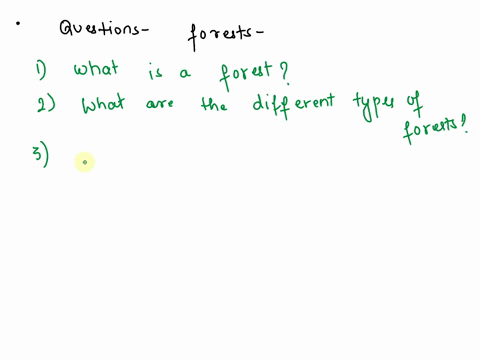 • Questions- forests-
1) What is a forest?
2) What are the different types of
forests?
3)